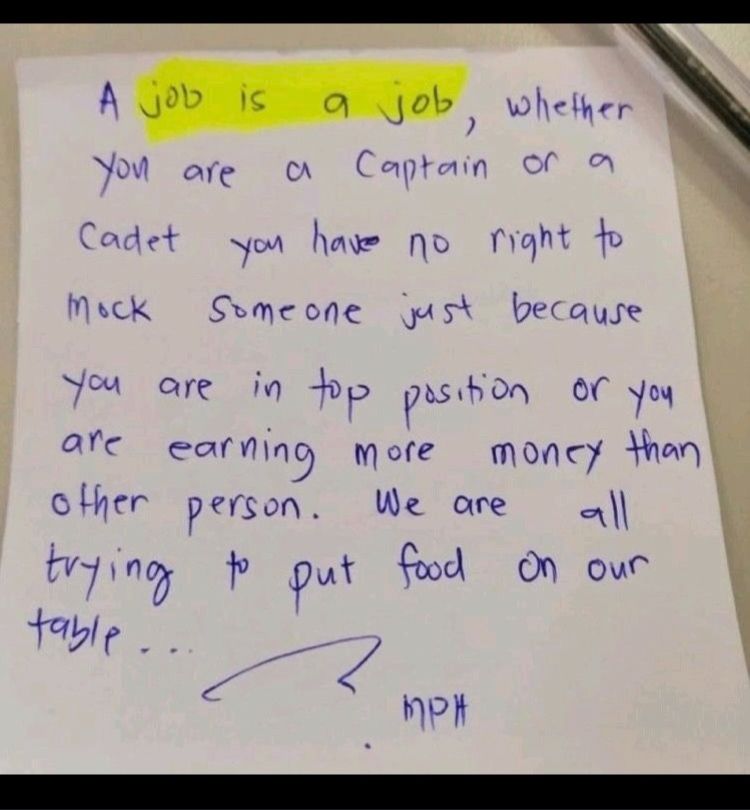 A job is a job, whether
you are a Captain or a
Cadet you have no right to
Mock Someone just because
you are in top position or you
are earning more money than
other person. We are all
trying to put food on our
table...
MPH